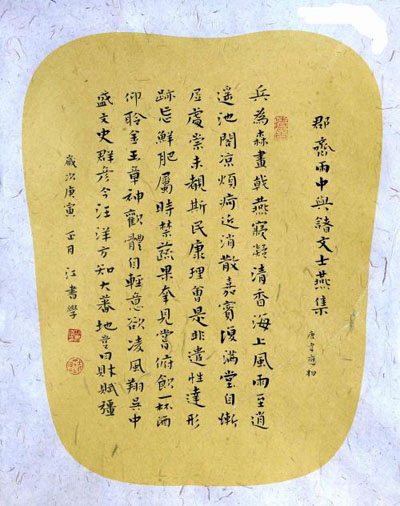 郡齋雨中與諸文士燕集
唐韋應物
兵為森畫戟燕寢凝清香海上風雨至逍
遥池閣凉煩疴近消散嘉賓復滿堂自慚
居處崇未覩斯民康理會是非遣性達形
跡忘鮮肥屬時禁蔬果幸見嘗俯飲一杯酒
仰聆金玉章神歡體自輕意欲凌風翔吳中
盛文史群彦今汪洋方知大蕃地豈曰財賦疆
歲次庚寅正月江書學